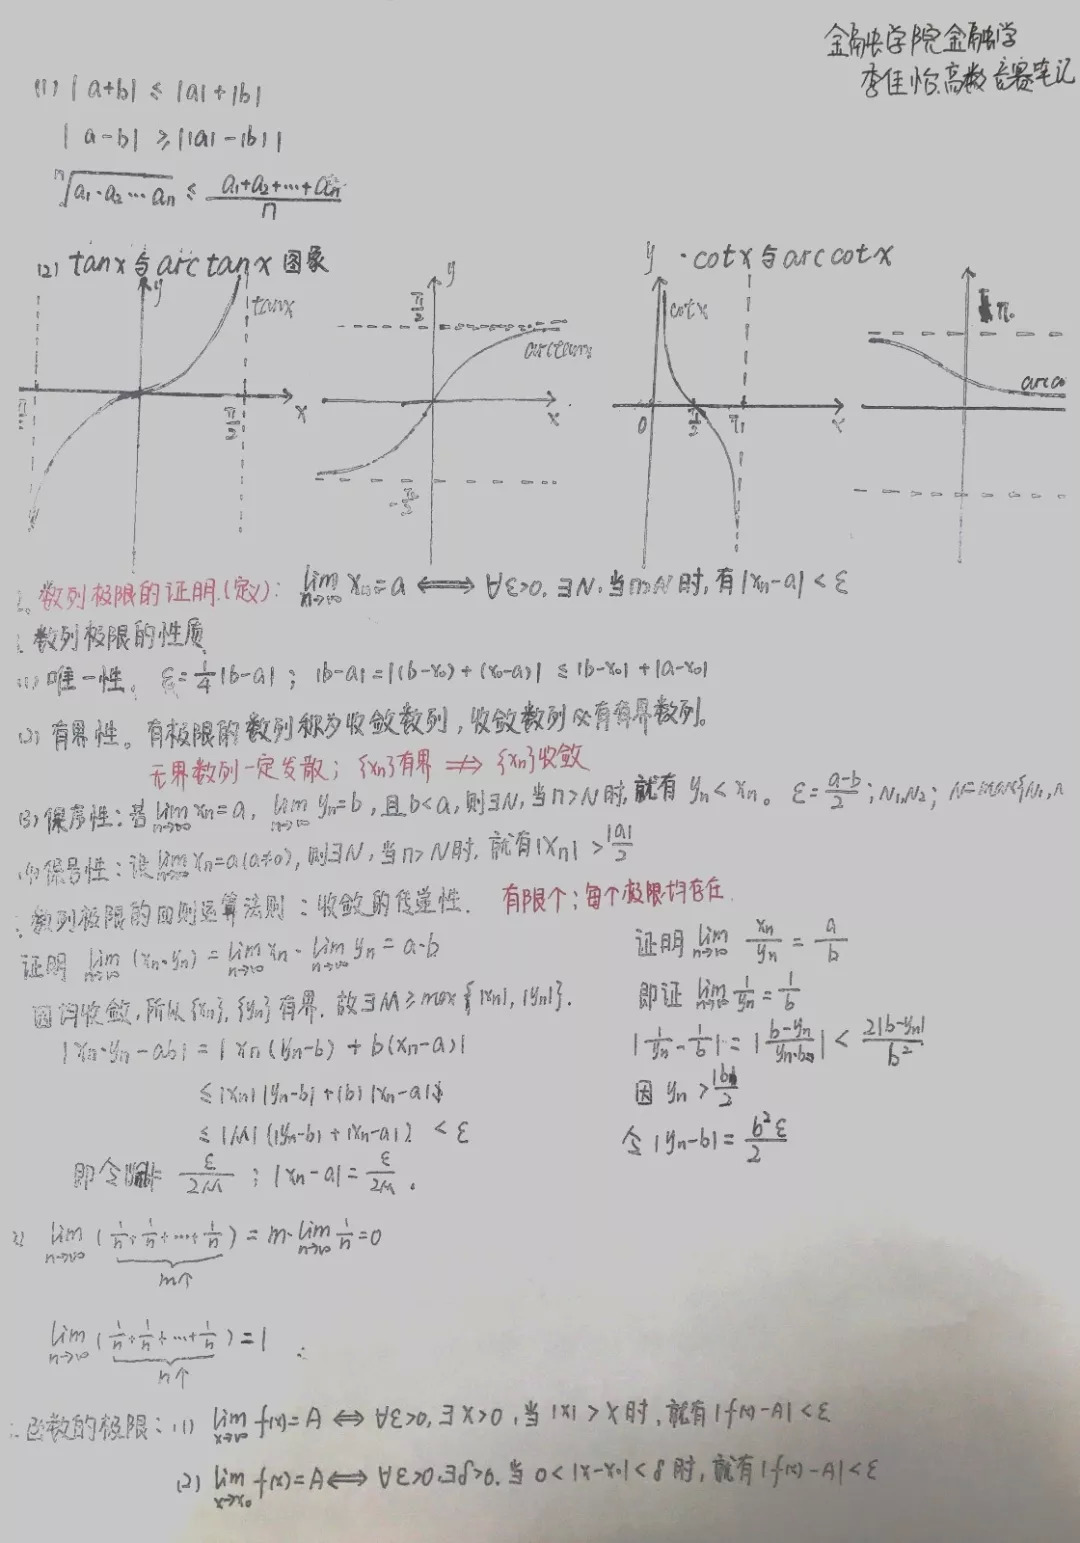 金融学院金融学
李佳怡高数竞赛笔记
(1) |a+b| ≤ |a|+|b|
|a-b| ≥ ||a|-|b||
ⁿ√(a₁·a₂…aₙ) ≤ (a₁+a₂+…+aₙ)/n
(2) tanx与arctanx图象
·cotx与arccotx
y tanx x π/2
y π/2 arctanx x -π/2
y cotx 0 π/2 π x
π arcco
数列极限的证明(定义): lim n→∞ xₙ=a ⟺ ∀ε>0, ∃N, 当n>N时, 有|xₙ-a|<ε
数列极限的性质
(1) 唯一性。 ε=1/4|b-a| ; |b-a|=|(b-x₀)+(x₀-a)| ≤ |b-x₀|+|a-x₀|
(2) 有界性。有极限的数列称为收敛数列, 收敛数列必有有界数列。
无界数列一定发散; {xₙ}有界 ⇏ {xₙ}收敛
(3) 保序性: 若 lim n→∞ xₙ=a, lim n→∞ yₙ=b, 且b<a, 则∃N, 当n>N时, 就有 yₙ<xₙ。 ε=(a-b)/2 ; N₁,N₂; N=max{N₁,N
(4) 保号性: 设 lim n→∞ xₙ=a(a≠0), 则∃N, 当n>N时, 就有|xₙ| > |a|/2
数列极限的四则运算法则: 收敛的传递性. 有限个; 每个极限均存在.
证明 lim n→∞ (xₙ·yₙ) = lim n→∞ xₙ · lim n→∞ yₙ = a·b
因均收敛, 所以{xₙ}, {yₙ}有界. 故∃M ≥ max{|xₙ|, |yₙ|}.
|xₙ·yₙ-ab| = |xₙ(yₙ-b) + b(xₙ-a)|
≤ |xₙ||yₙ-b|+|b||xₙ-a|
≤ |M|(|yₙ-b|+|xₙ-a|) < ε
即令 = ε/2M ; |xₙ-a| = ε/2M.
证明 lim n→∞ xₙ/yₙ = a/b
即证 lim n→∞ 1/yₙ = 1/b
|1/yₙ - 1/b| = |(b-yₙ)/(yₙ·b)| < 2|b-yₙ|/b²
因 yₙ > |b|/2
令 |yₙ-b| = b²ε/2
lim n→∞ (1/n+1/n+…+1/n) = m·lim n→∞ 1/n = 0
m个
lim n→∞ (1/n+1/n+…+1/n) = 1
n个
函数的极限: (1) lim x→∞ f(x)=A ⟺ ∀ε>0, ∃X>0, 当|x|>X时, 就有|f(x)-A|<ε
(2) lim x→x₀ f(x)=A ⟺ ∀ε>0. ∃δ>0. 当 0<|x-x₀|<δ时, 就有|f(x)-A|<ε